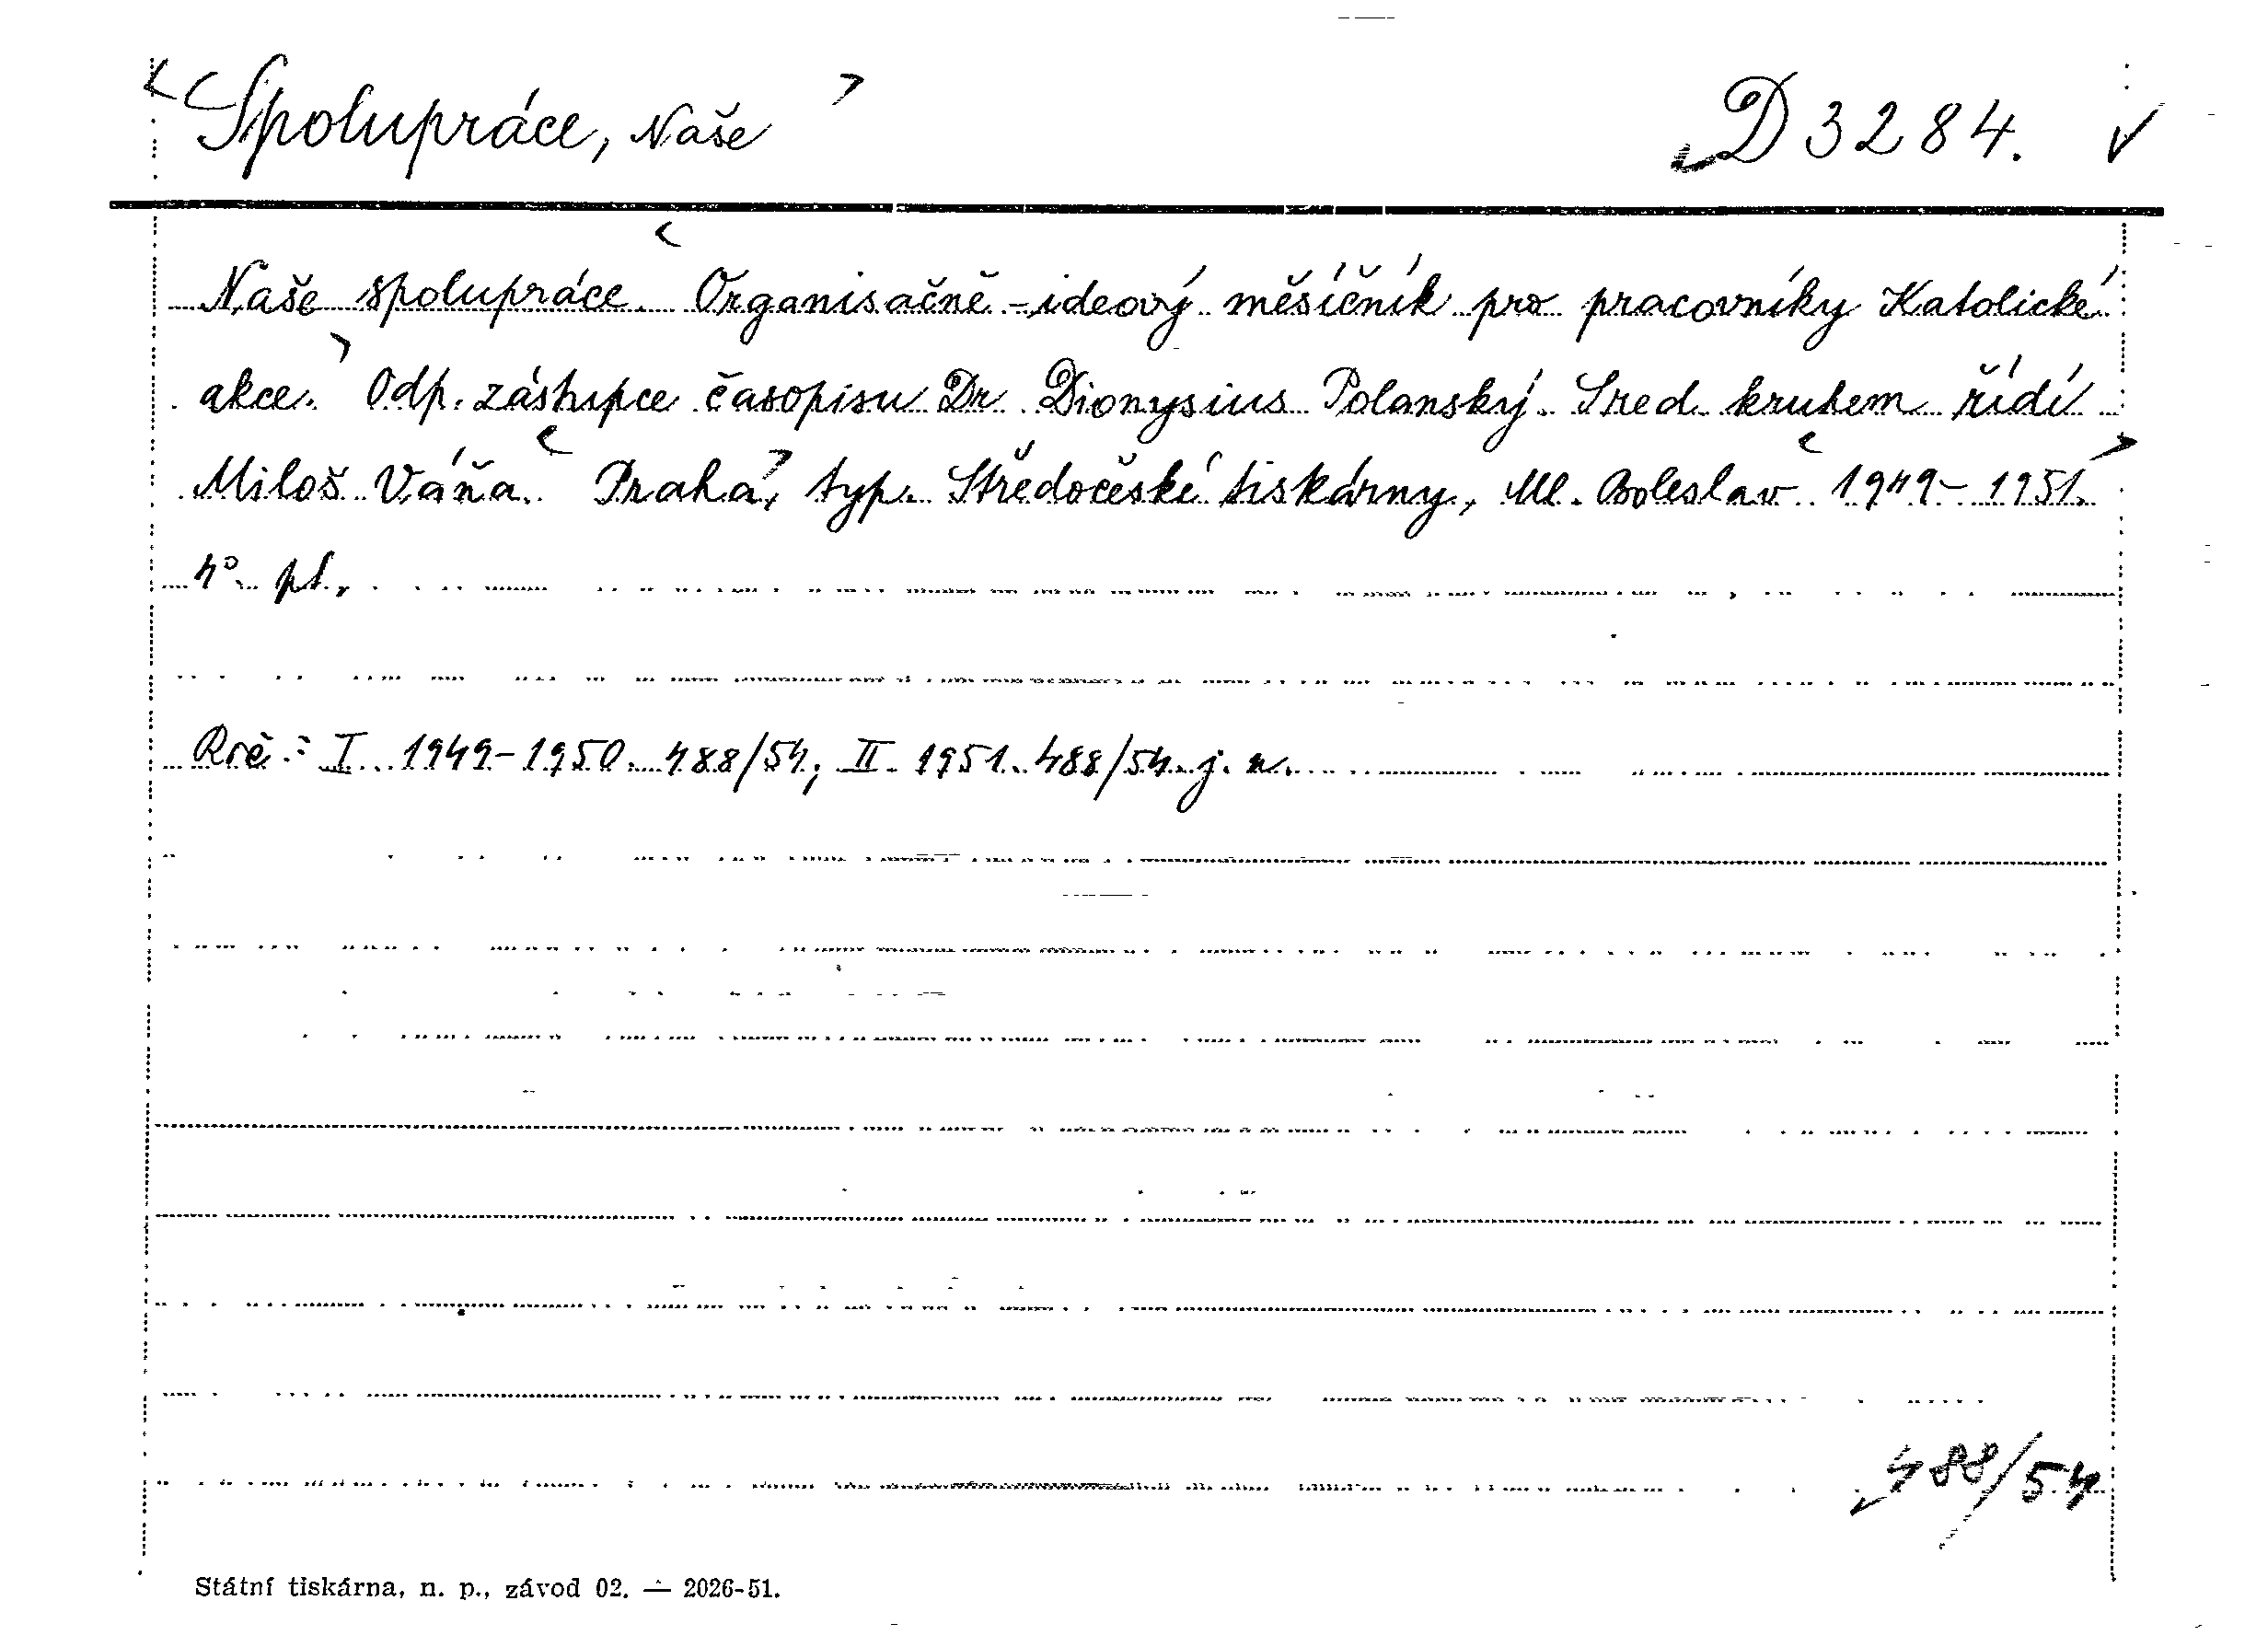 < Spolupráce, Naše > D 3284. ✓
Naše spolupráce. < Organisačně-ideový měsíčník pro pracovníky Katolické
akce. > Odp. zástupce časopisu Dr Dionysius Polanský. S red. kruhem řídí
Miloš Váňa. < Praha, > typ. Středočeské tiskárny, Ml. Boleslav. < 1949-1951. >
4°. pl.,
Roč.: I. 1949-1950. 488/54; II. 1951. 488/54. j. n.
488/54
Státní tiskárna, n. p., závod 02. — 2026-51.